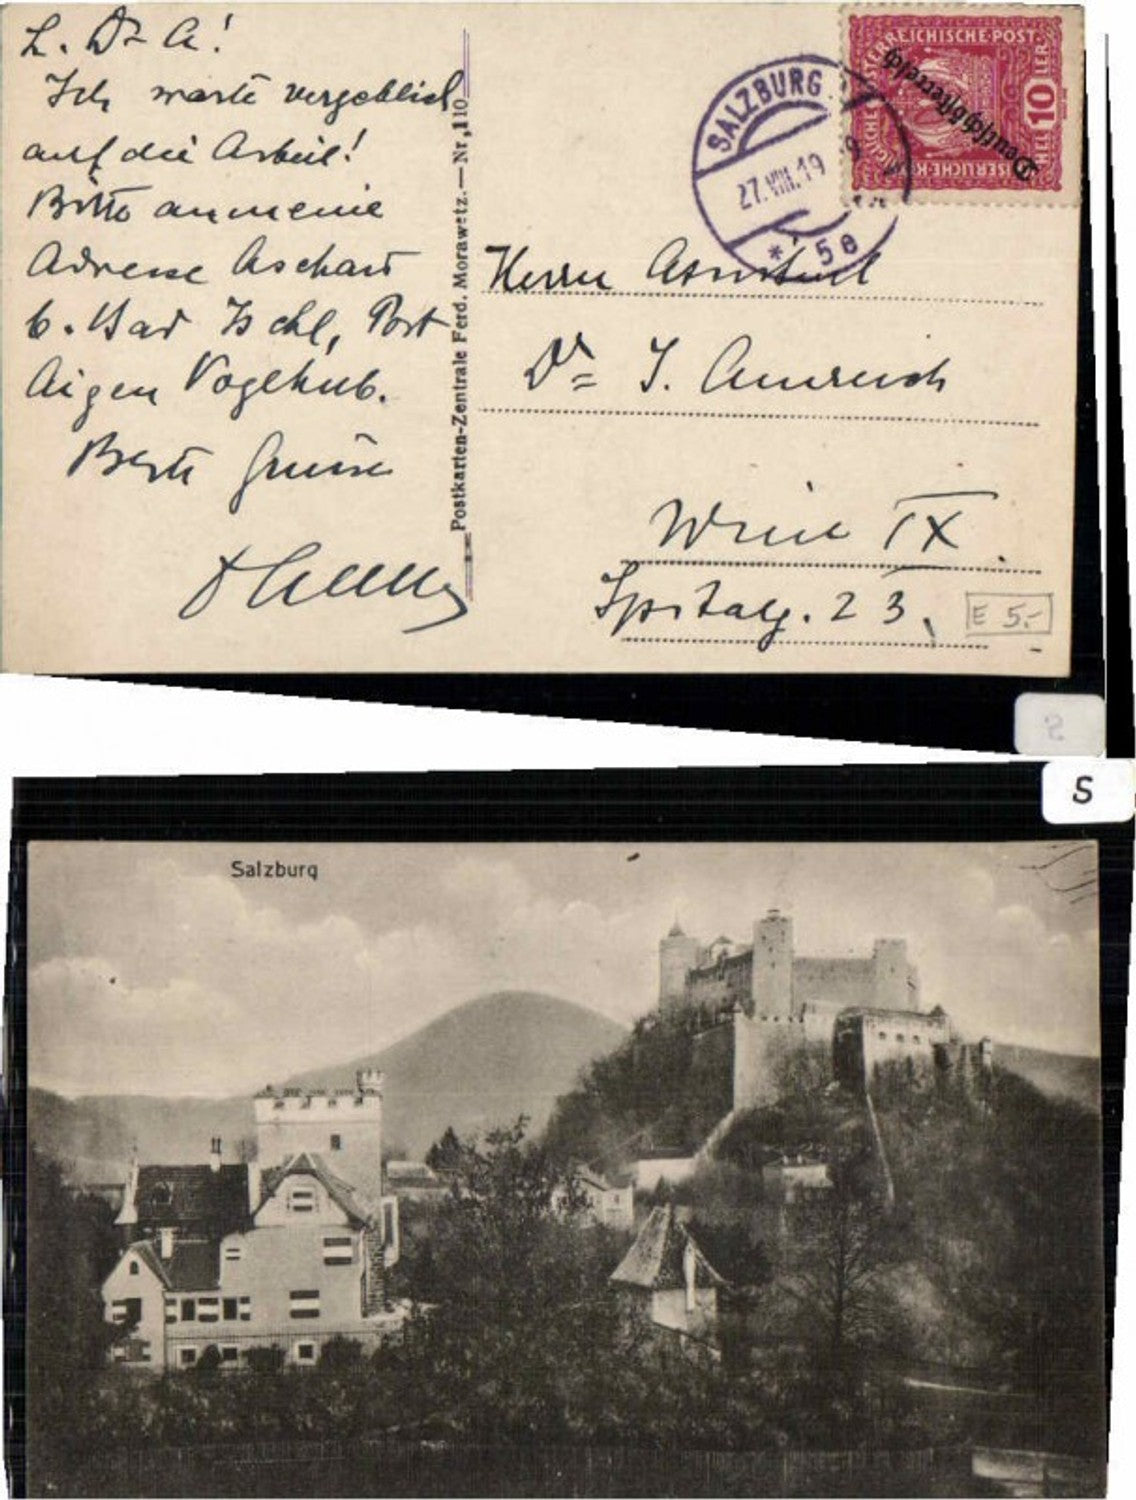 L. Dr A!
Ich warte vergeblich
auf die Arbeit!
Bitte an meine
Adresse Aschau
b. Bad Ischl, Post
Aigen Voglhub.
Beste Grüsse
Postkarten-Zentrale Ferd. Morawetz.—Nr. 110
SALZBURG
27.VIII.19
* 5e
ÖSTERREICHISCHE·POST
10
HELLER
Deutschösterreich
Herrn Assistent
Dr J. Amreich
Wien IX.
Spitalg. 23.
E 5.-
2
S
Salzburg